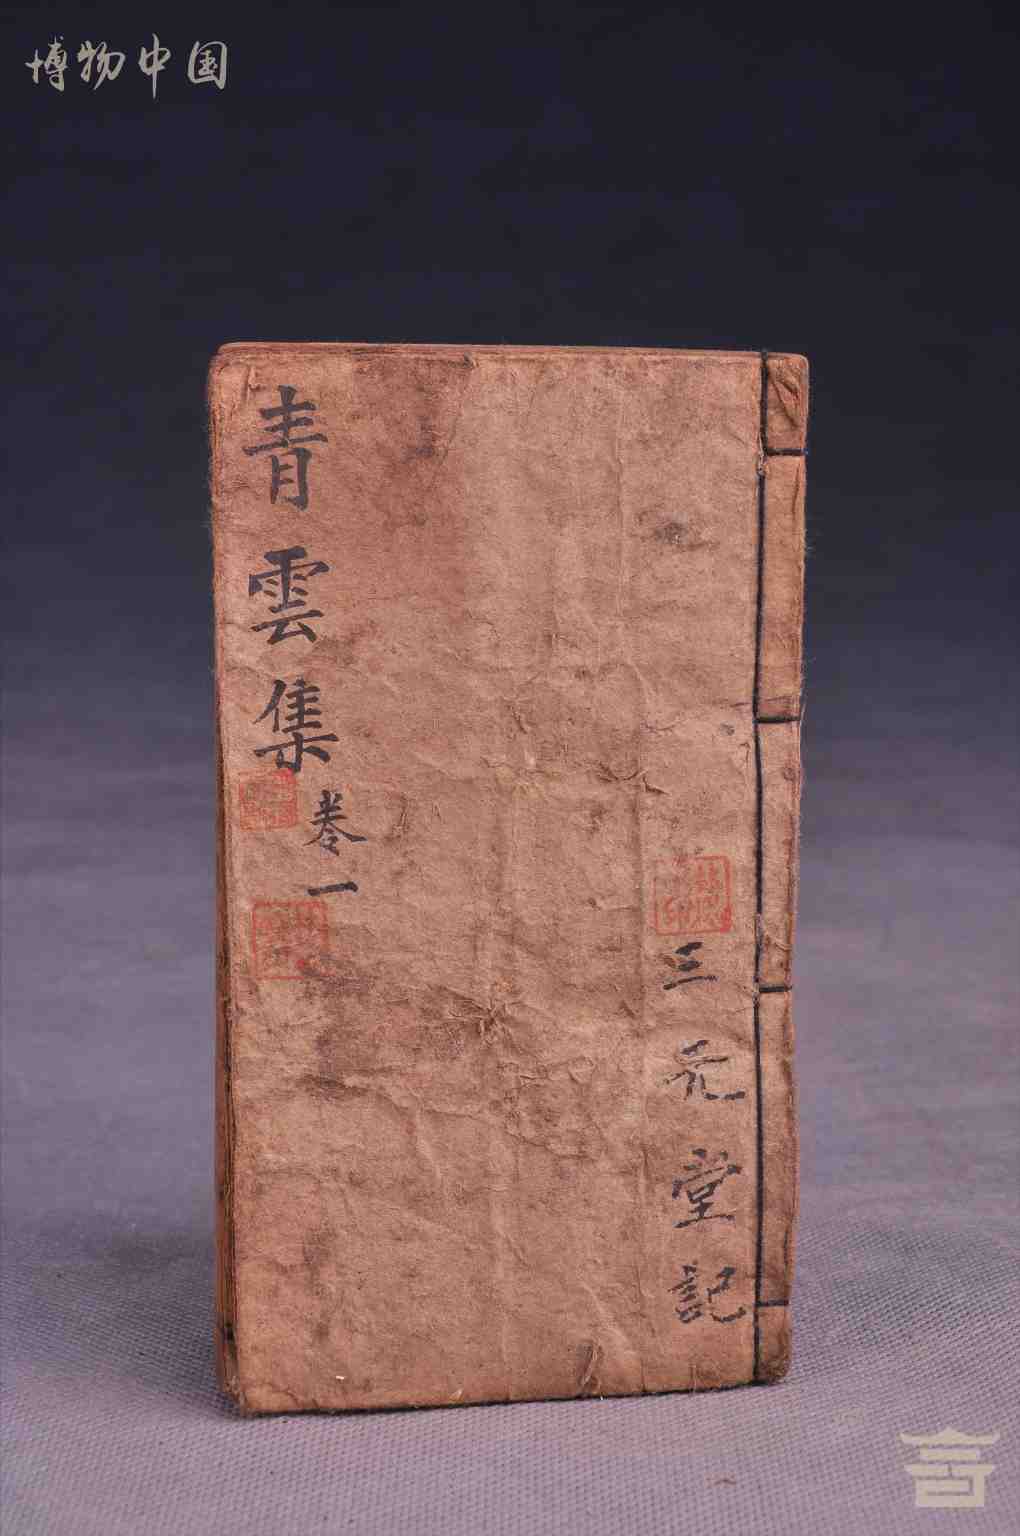 博物中国
青雲集
卷一
三元堂記